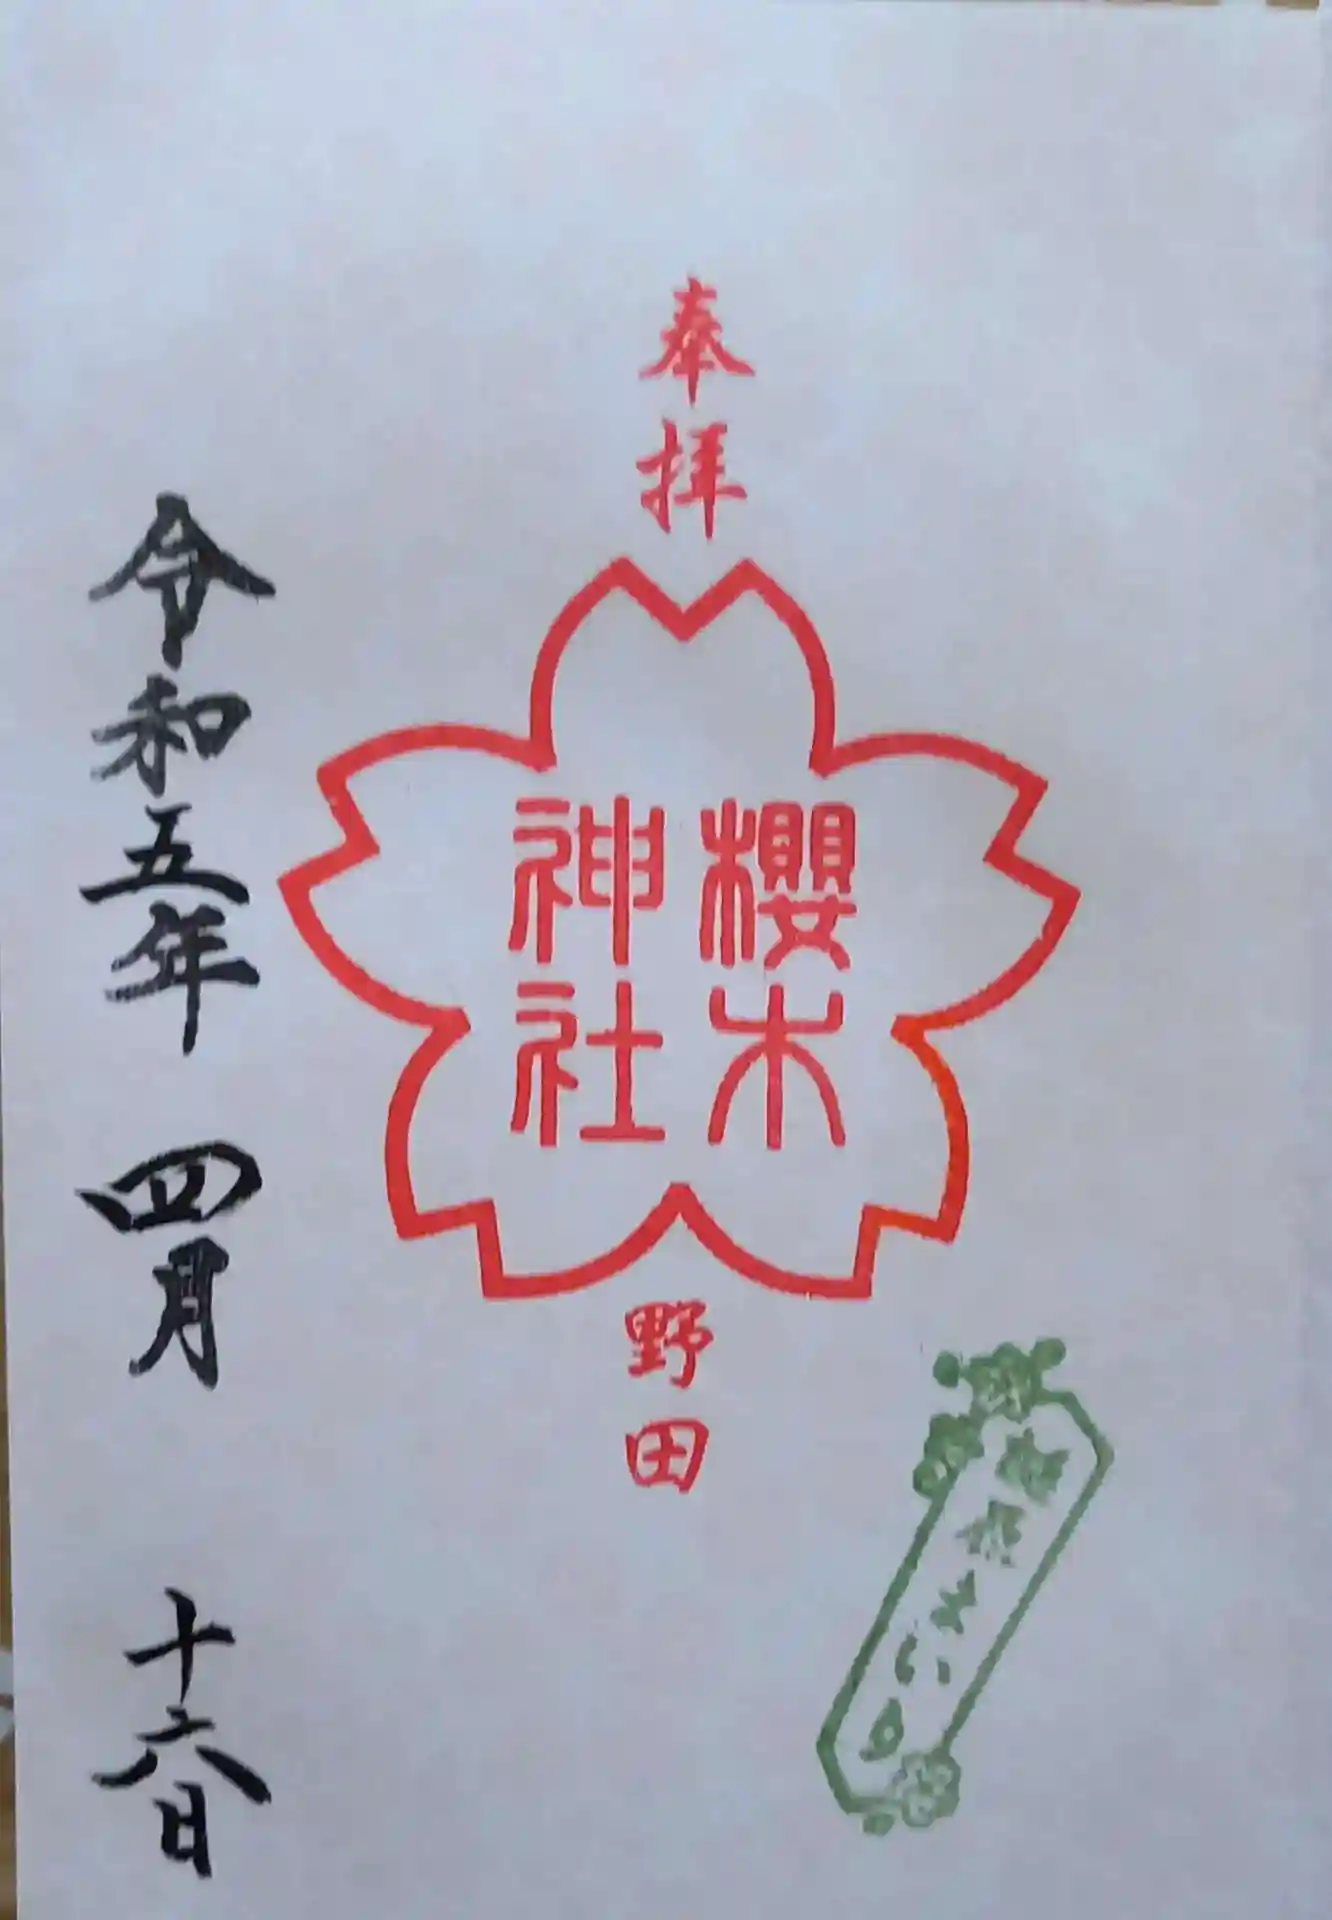 奉拝
櫻木
神社
野田
令和五年 四月 十六日